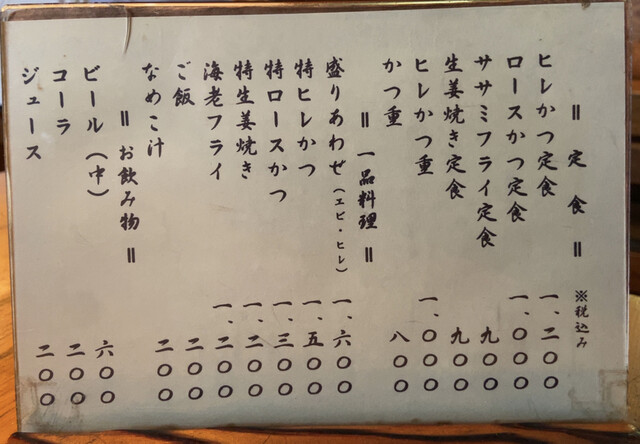 ＝定食＝ ※税込み
ヒレかつ定食 一、二〇〇
ロースかつ定食 一、〇〇〇
ササミフライ定食 九〇〇
生姜焼き定食 九〇〇
ヒレかつ重 一、〇〇〇
かつ重 八〇〇
＝一品料理＝
盛りあわせ（エビ・ヒレ） 一、六〇〇
特ヒレかつ 一、五〇〇
特ロースかつ 一、三〇〇
特生姜焼き 一、二〇〇
海老フライ 一、二〇〇
ご飯 二〇〇
なめこ汁 二〇〇
＝お飲み物＝
ビール（中） 六〇〇
コーラ 二〇〇
ジュース 二〇〇